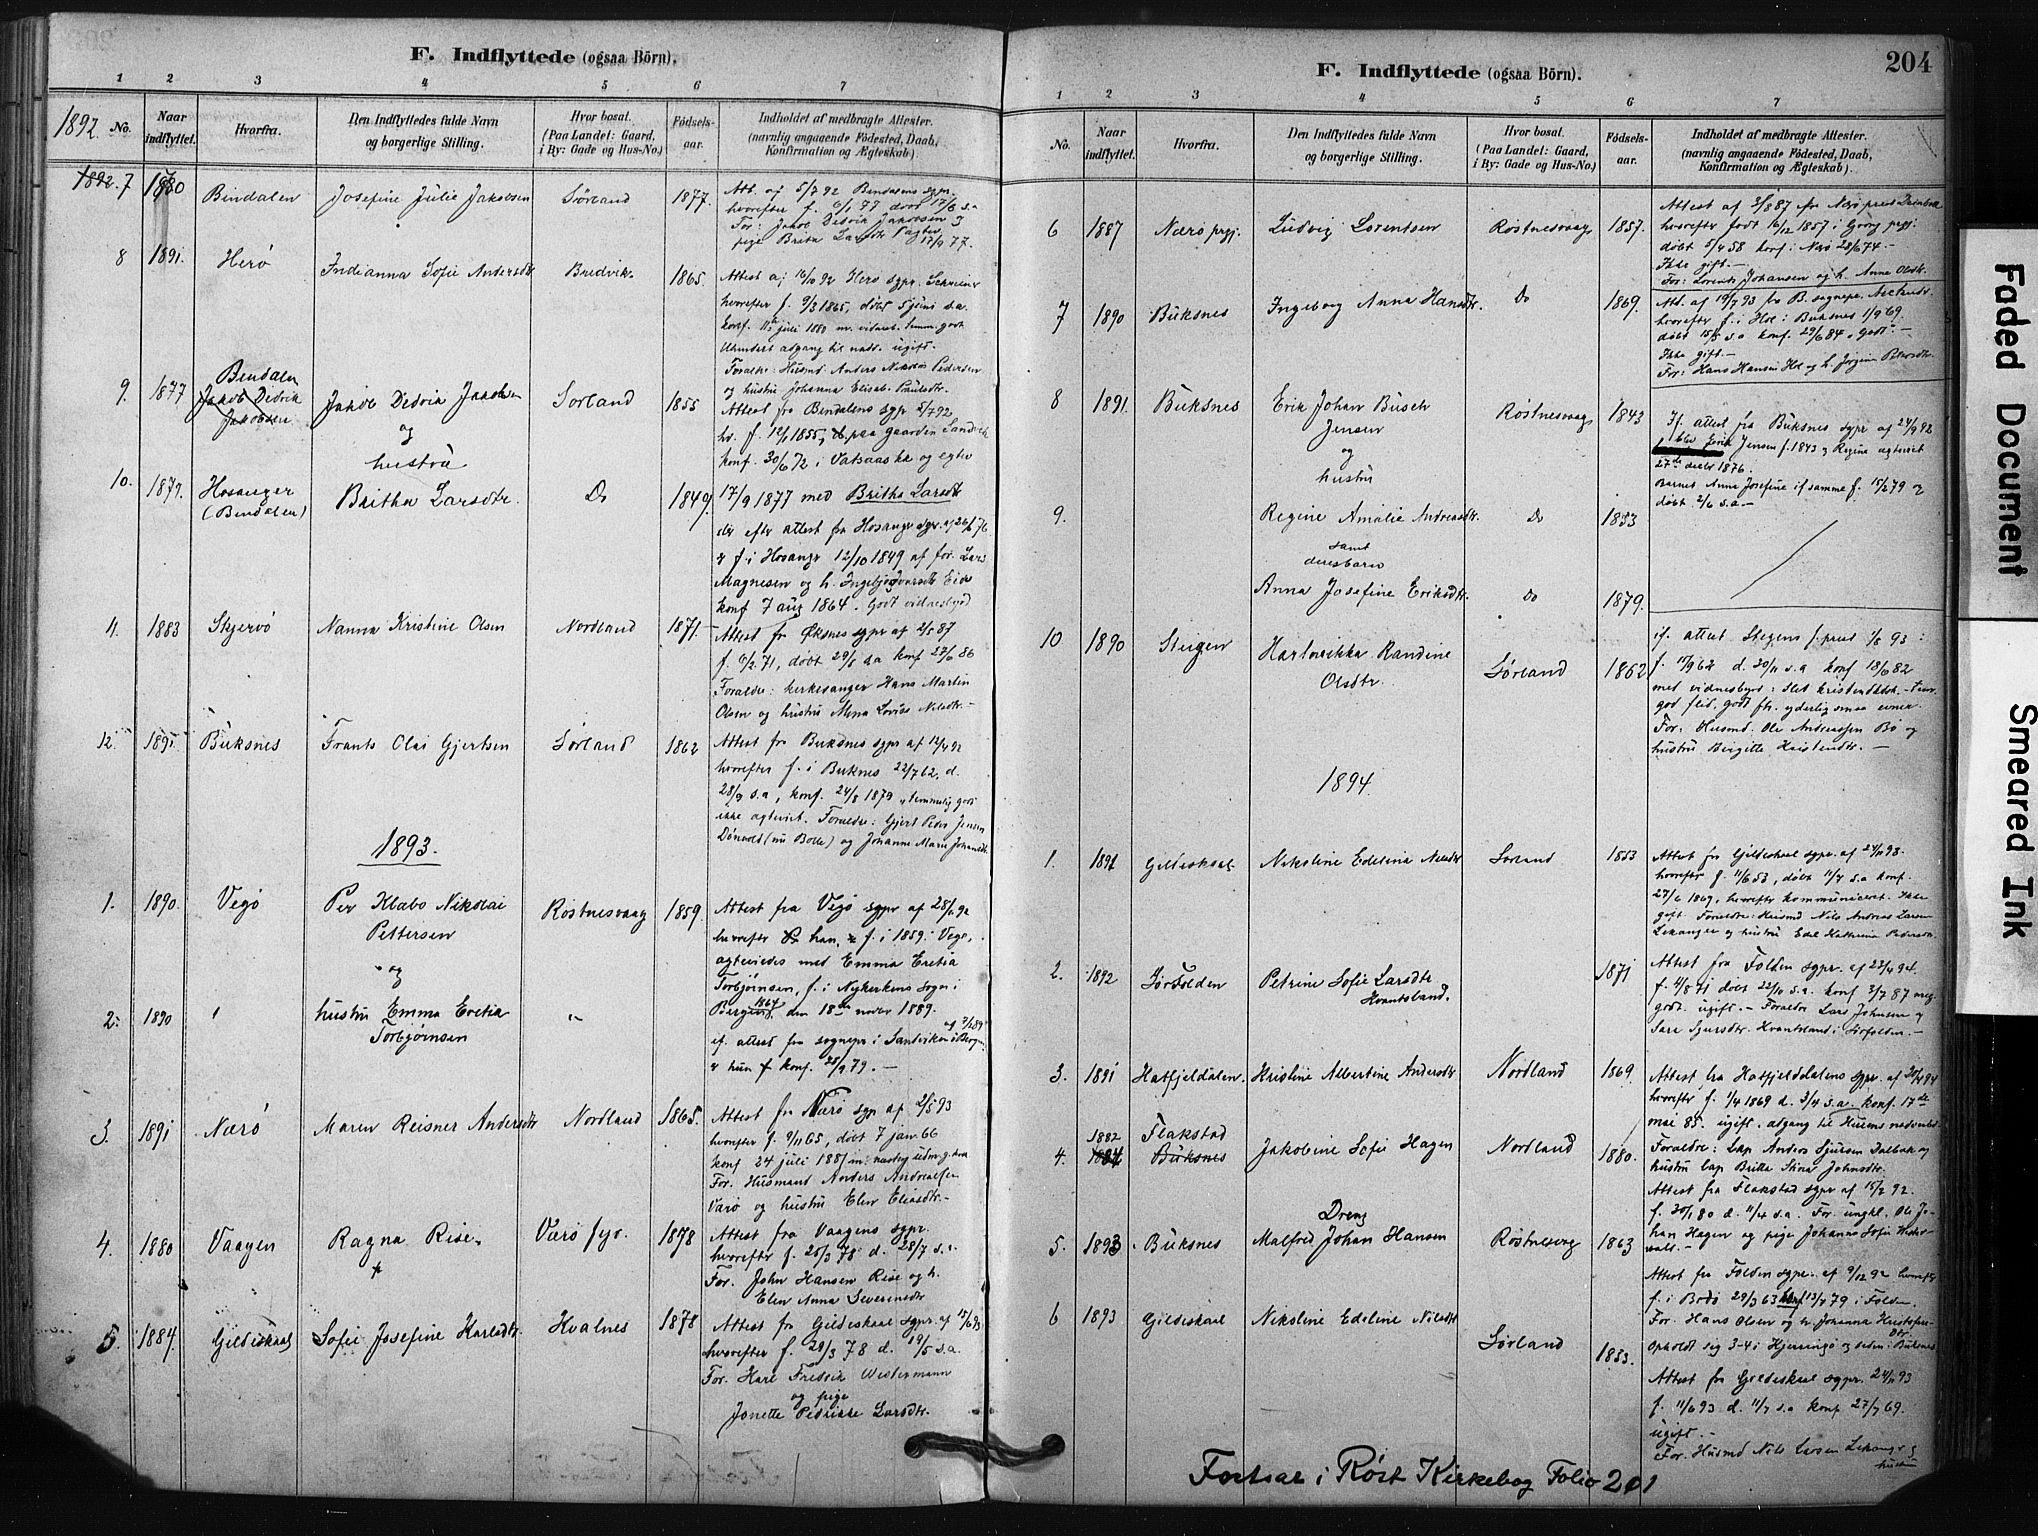 F. Indflyttede (ogsaa Börn).
1 2 3 4 5 6 7
1892. No.
Naar indflyttet.
Hvorfra.
Den Indflyttedes fulde Navn
og borgerlige Stilling.
Hvor bosat.
(Paa Landet: Gaard,
i By: Gade og Hus-No.)
Fødsels-
aar.
Indholdet af medbragte Attester.
(navnlig angaaende Födested, Daab,
Konfirmation og Ægteskab).
1892. 7 1880 Bindalen Josefine Julie Jakobsen Sørland 1877.
Att. af 5/7 92 Bindalens sgpr.
hvorefter f. 6/1 77 døbt 17/6 s.a
For: Jakob Dedrik Jakobsen
pige Brita Larsdtr
8 1891. Herø Indianna Sofie Andersdtr Bredvik 1865.
Attest af 16/10 92 Herø sgpr.
hvorefter f. 9/3 1865, døbt 5 juni s.a.
konf. juli 1880
adgang til nadv. ugift.
Foraldre: Husmd. Anders Nikolai Pedersen
og hustru Johanna Elisab. Paulsdtr.
9. 1877 Bendalen
Jakob Dedrik
Jakobsen
Jakob Dedrik Jakobsen Sørland 1855
og
hustru
Attest fra Bendalens sgpr 2/7 92
hv. f. 12/1 1855, paa gaarden Sandvik
konf. 30/6 72 i Vatsaas kk og egtev
10. 1877. Hosanger
(Bendalen)
Britha Larsdtr. Do 1849.
17/9 1877 med Britha Larsdtr
der efter attest fra Hosanger sgpr. af 26/6 76
er f. i Hosangr 12/10 1849 af for. Lars
Magnesen og h. Ingebjør Ivarsdtr Eide
konf 7 aug 1864. Godt vidnesbyrd
11. 1883 Skjervø Nanna Kristine Olsen Nordland 1871.
Attest fr Øksnes sgpr af 2/5 87
f. 9/2 71, døbt 29/5 s.a konf 27/6 86
Foraldre: kerkesanger Hans Martin
Olsen og hustru Mena Lovise Nilsdtr.
12. 1891. Buksnes Frants Olai Gjertsen Sørland 1862
Attest fr Buksnes sgpr af 12/4 92
hvorefter f. i Buknes 22/7 62, d.
28/9 s.a, konf. 24/8 1879 „temmelig godt
ikke egteviet. Foraldre: Gjert Peder Jensen
Dønvold (nu Bolle) og Johanne Marie Johansdtr.
1893.
1. 1890. Vegø Per Klabo Nikolai
Pettersen
Røstnesvaag 1859.
og
Attest fra Vegø sgpr af 28/6 92
hvorefter han, f. i 1859 i Vegø,
egteviedes med Emma Eretia
Torbjørnsen, f. i Nykerkens sogn i
Bergen 1864, den 18de novbr 1889.
2. 1890 hustru Emma Eretia
Torbjørnsen
if. attest fra sognepr i Sandviken i Bergen
er hun konf. 28/9 79.
3. 1891 Nærø Maren Reisner Andersdtr Nordland 1865.
Attest fr Nærø sgpr af 2/5 93
hvorefter f. 9/11 65, døbt 7 jan. 66
konf 24 juli 1881
For. Husmand Anders Andreassen
Varø og hustru Elen Eliasdtr.
4. 1880 Vaagen Ragna Rise Værø fyr. 1878
Attest fra Vaagens sgpr.
hvorefter f. 25/3 78 d. 28/7 s.a.
For. John Hansen Rise og h.
Elen Anna Severinsdtr
5. 1884. Gildeskaal Sofie Josefine Karlsdtr. Kvalnes 1878
Attest fr Gildeskaal sgpr. af 15/6 93
hvorefter f. 29/3 78 d. 19/5 s.a.
For. Karl Fredrik Westermann
og pige
Jonette Pedrikke Larsdtr.
F. Indflyttede (ogsaa Börn).
204
1 2 3 4 5 6 7
No.
Naar indflyttet.
Hvorfra.
Den Indflyttedes fulde Navn
og borgerlige Stilling.
Hvor bosat.
(Paa Landet: Gaard,
i By: Gade og Hus-No.)
Födsels-
aar.
Indholdet af medbragte Attester.
(navnlig angaaende Födested, Daab,
Konfirmation og Ægteskab).
6 1887 Nærø prgj. Ludvig Lorentsen Røstnesvaag 1857.
Attest af 3/8 87 fra Nærø prest
hvorefter født 16/12 1857 i prgj.
døbt 5/4 58 konf. Nærø 28/6 74.
Ikke gift.
For: Lorents Johansen og h. Anne Olsdtr.
7 1890 Buksnes Ingeborg Anna Hansdtr. Do 1869.
Att. af 19/7 93 fra B. sognepr.
hvorefter f. i Hol i Buksnes 1/2 69.
døbt 15/5 s.a konf. 29/6 84. Godt.
Ikke gift.
For: Hans Hansen Hol og h. Jørgine
8 1891. Buksnes Erik Johan Busch
Jensen
og
hustru
Røstnesvaag 1843
If. attest fra Buksnes sgpr af 24/9 92
blev Erik Jensen f. 1843 og Regine egteviet
27de decbr 1876.
Barnet Anna Josefine if samme f. 15/2 79 og
døbt 2/6 s.a.
9. Regine Amalie Andreasdtr. Do 1853
samt
deres barn
Anna Josefine Eriksdtr. Do 1879.
10 1890 Steigen Hartvikka Randine
Olsdtr.
Sørland 1862
if. attest Stegens s.prest 1/8 93:
f. 17/9 62 d. 30/11 s.a konf 18/6 82
god flid, godt fh. yderlig smaa evner.
For: Husmd. Ole Andreassen Bø og
hustru Birgitte Kristensdtr.
1894.
1. 1891 Gildeskaal Nikoline Edeline Nilsdtr Sørland 1853
Attest fra Gildeskaal sgpr. af 24/11 93.
hvorefter f. 11/6 53, døbt 11/7 s.a konf.
27/6 1869, hvorefter kommuniceret. Ikke
gift. Foraldre: Husmd Nils Andreas Larsen
Lekanger og hustru Edel Kathrina Pedersdtr.
2. 1892 Sørfolden Petrine Sofie Larsdtr
Kvantsland.
1871
Attest fra Folden sgpr. af 23/4 94.
f. 4/8 71 døbt 22/10 s.a. konf 3/7 87 meg.
godt. ugift. Foraldre Lars Johnsen og
Sara Sjursdtr. Kvantsland i Sørfolden.
3. 1891 Hatfjeldalen. Kristine Albertine Andersdtr Nordland 1869.
Attest fra Hatfjelddalens sgpr. af 30/4 94
hvorefter f. 1/4 1869 d. 2/4 s.a. konf. 17de
mai 85. ugift. adgang til Husens nadverd.
Foraldre: Lap Anders Sjursen Dalbak og
hustru lap Britta Stina Johnsdtr.
4. 1882
1884
Flakstad
Buksnes
Jakobine Sofie Hagen Nordland 1880.
Attest fra Flakstad sgpr af 15/2 92.
f. 30/1 80 d. 11/4 s.a. For. ungkl. Ole Jo-
han Hagen og pige Johanna Sofie
5. 1893 Buksnes Dreng
Malfred Johan Hansen Røstnesvag 1863
Attest fra Folden sgpr. af 9/12 92 hvorefter
f. i Bodø 29/3 63 konf 13/7 79 i Folden.
For. Hans Olsen og h. Johanna Kristofersdtr.
Opholdt sig 3-4 i Hjerringø og siden i Buksnes
6 1893 Gildeskaal Nikoline Edeline Nilsdtr
Sørland 1853.
Attest fra Gildeskaal sgpr. 24/11 93
f. 11/6 93 d. 11/7 s.a konf 27/7 69.
ugift.
For. Husmd Nils Larsen Lekanger og
hustru
Fortsat i Røst Kirkebog Folio 201
Faded Document
Smeared Ink